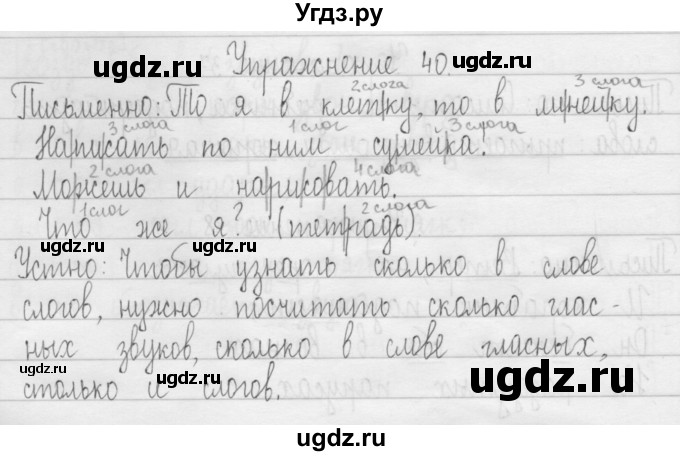 Угдз.ру
Упражнение 40.
ugdz.ru
2 слога 3 слога
Письменно: То я в клетку, то в линейку.
3 слога 1 слог 3 слога
Написать по ним сумейка.
ugdz.ru
2 слога 4 слога
Можешь и нарисовать.
1 слог 2 слога
Что же я? (тетрадь)
ugdz.ru ugdz.ru
Устно: Чтобы узнать сколько в слове
слогов, нужно посчитать сколько глас-
ных звуков, сколько в слове гласных,
ugdz.ru
столько и слогов.
ugdz.ru ugdz.ru
ugdz.ru